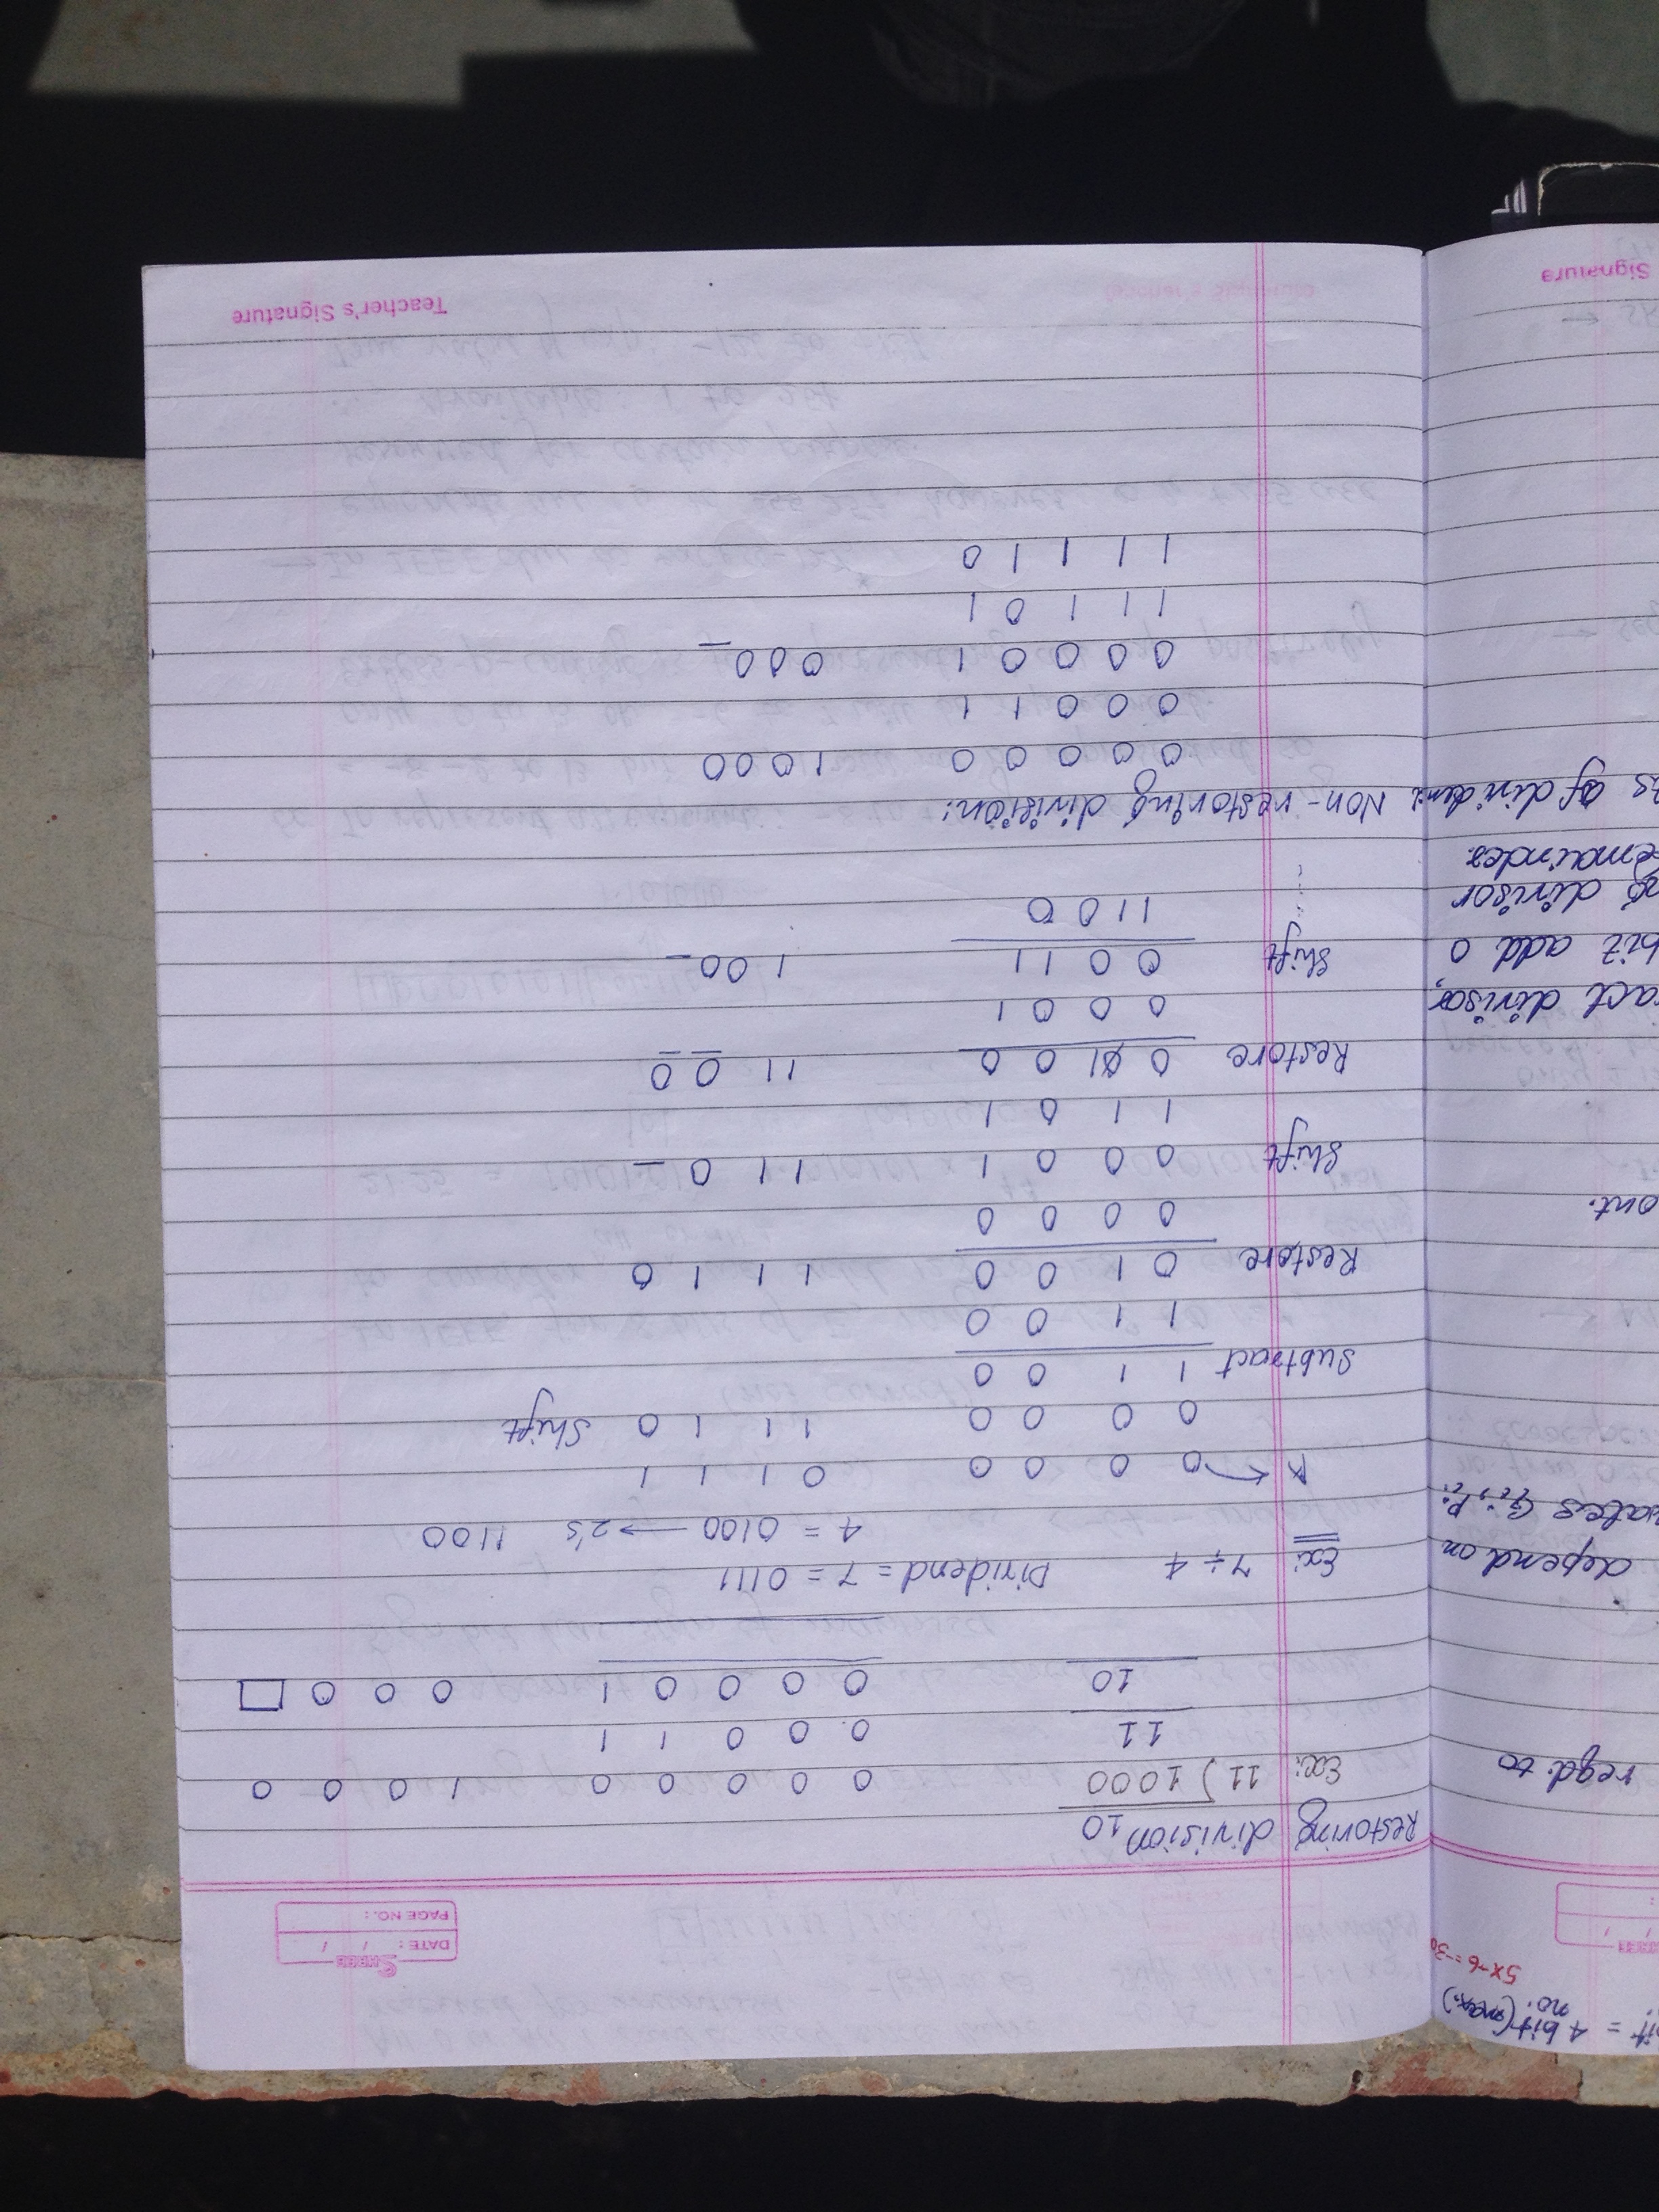 it = 4 bit (max.)
no.
5x-6=-30
reqd. to
depend on
uates Gi, Pi.
ont.
act divisor,
bit add 0
ng divisor
emainder.
ts of dividend
Signature
SHREE
DATE : / /
PAGE NO. :
Restoring division
10
Ex: 11 ) 1000 0 0 0 0 0 1 0 0 0
11 0. 0 0 1 1
10 0 0 0 0 1 0 0 0 □
Ex: 7 ÷ 4 Dividend = 7 = 0111
4 = 0100 → 2's 1100
A ← 0 0 0 0 0 1 1 1
0 0 0 0 1 1 1 0 Shift
Subtract 1 1 0 0
1 1 0 0
Restore 0 1 0 0 1 1 1 0
0 0 0 0
Shift 0 0 0 1 1 1 0 _
1 1 0 1
Restore 0 1 0 0 1 1 0 0
0 0 0 1
Shift 0 0 1 1 1 0 0 _
1 1 0 0
Non-restoring division:
0 0 0 0 0 1 0 0 0
0 0 0 1 1
0 0 0 0 1 0 0 0 _
1 1 1 0 1
1 1 1 1 0
Teacher's Signature